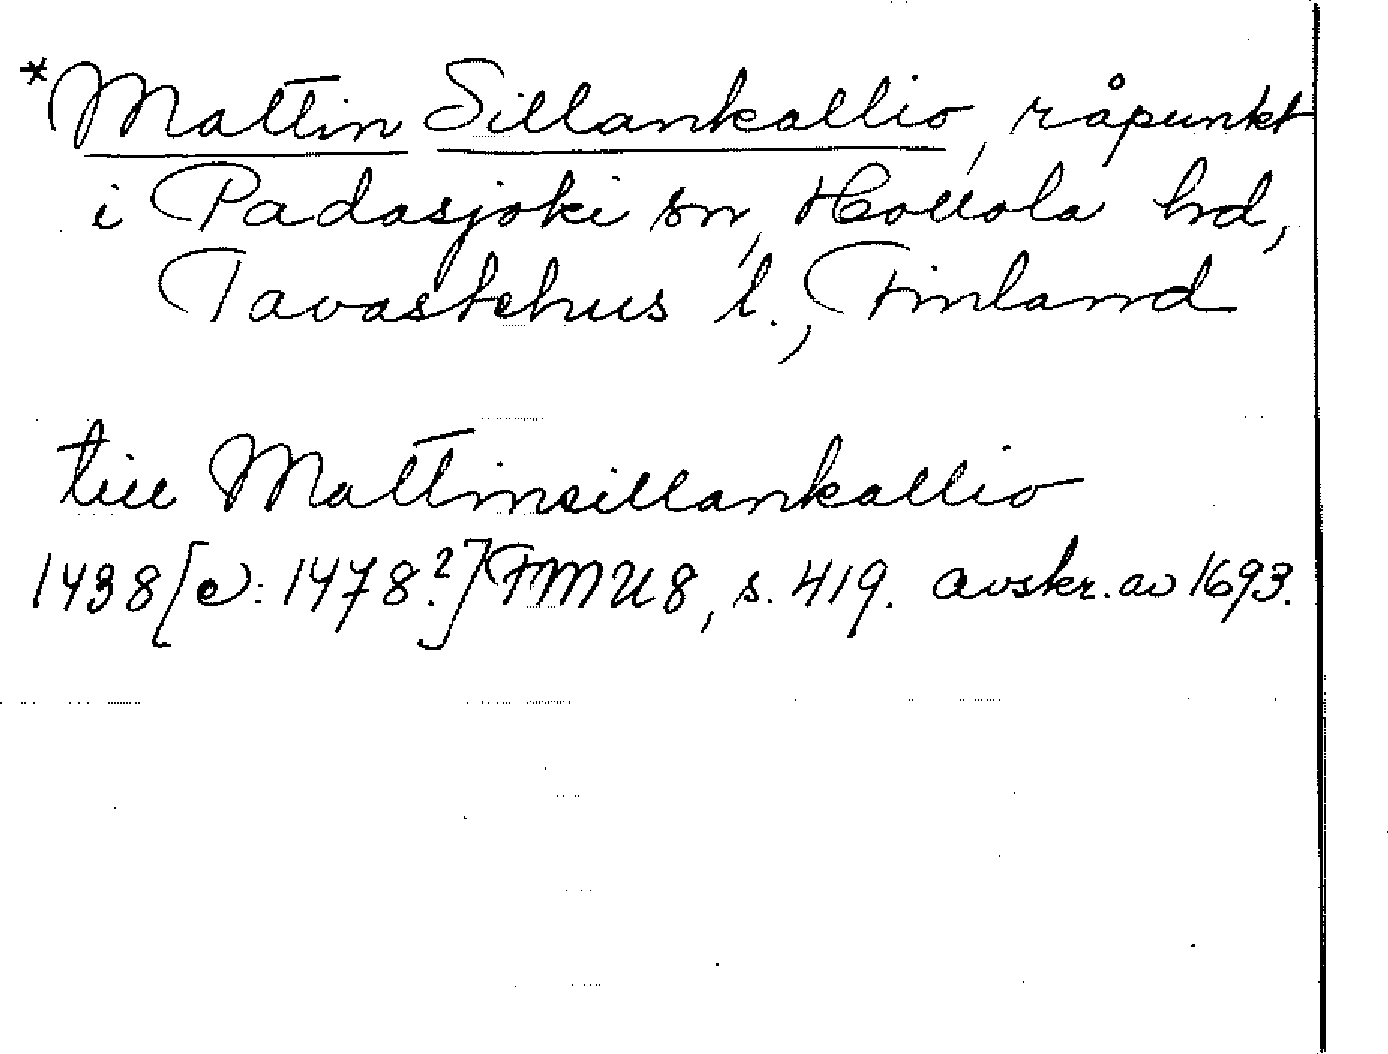 *Mattin Sillankallio, råpunkt
i Padasjoki sn, Hollola hd,
Tavastehus l., Finland
till Mattinsillankallio
1438 [e: 1478?] FMU 8, s. 419. avskr. av 1693.